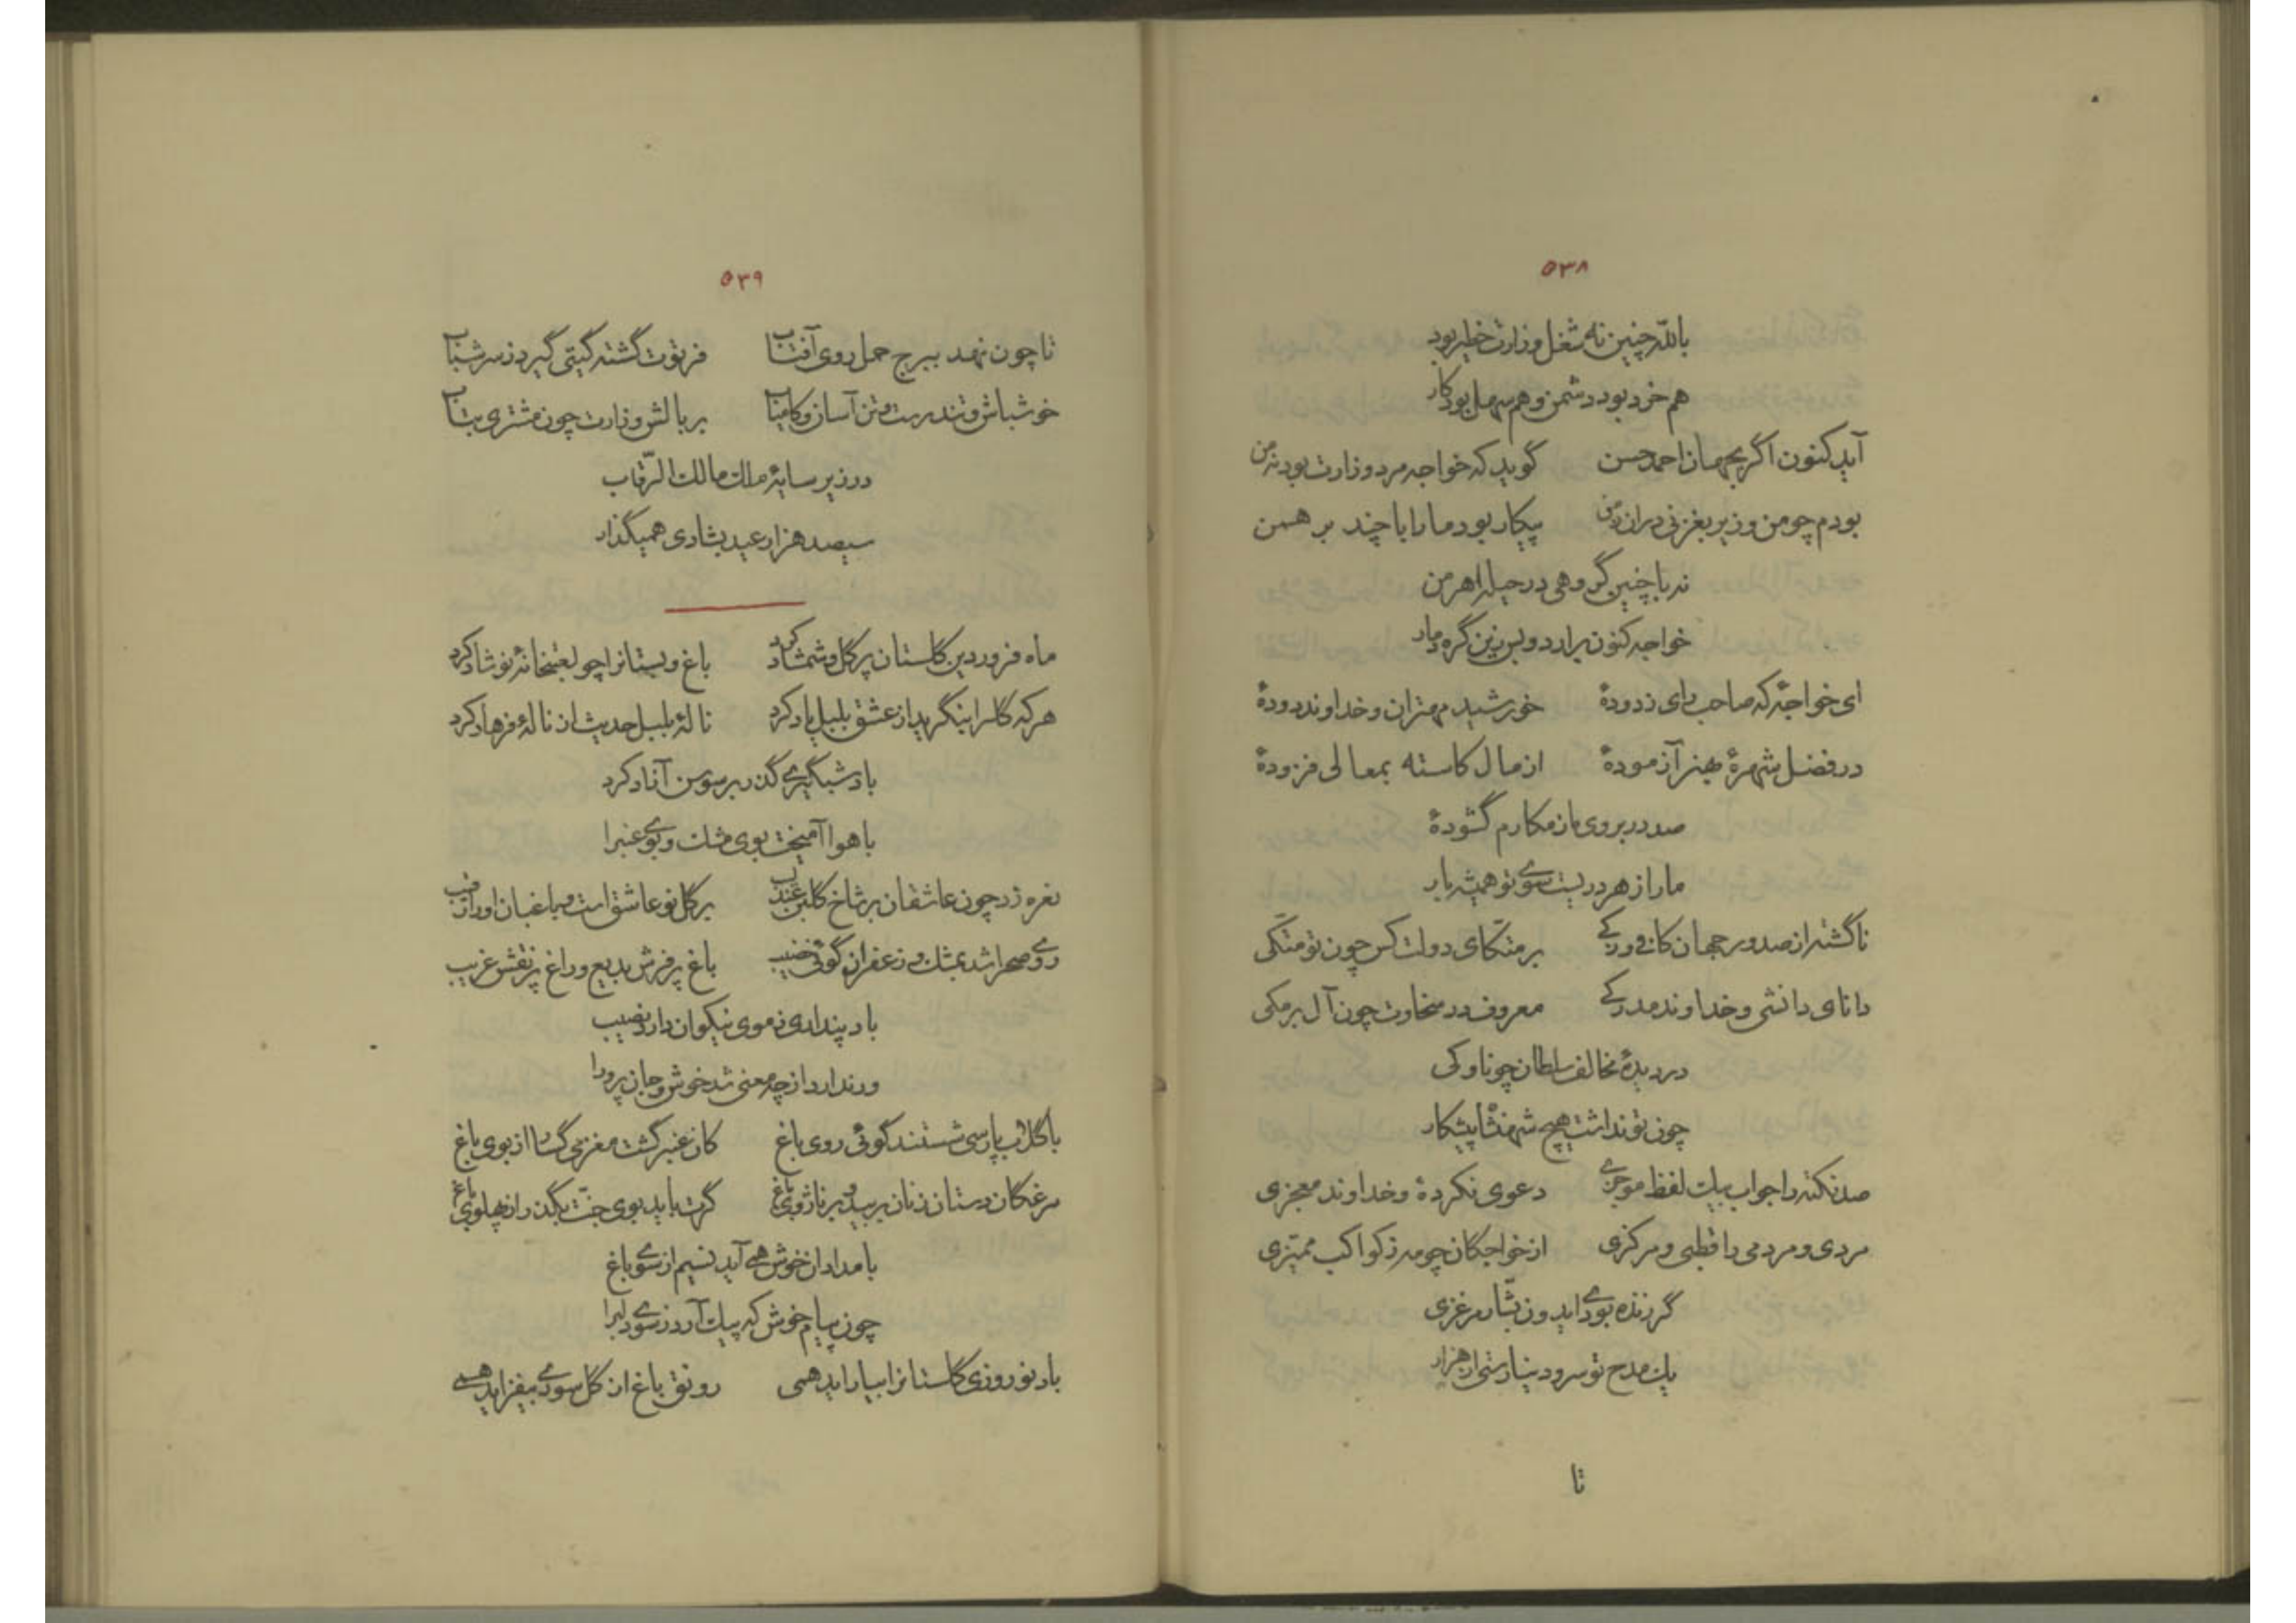 ۵۳۸
باللّه چنین نه شغل وزارت خطیر بود
هم خرد بود دشمن و هم سهل بود کار
آید کنون اگر بجهان احمد حسن گوید که خواجه مرد وزارت بود نه من
بودم چو من وزیر بغزنی دران زمن پیکار بود ما را با چند برهمن
نه با چنین گروهی در حیله اهرمن
خواجه کنون برارد وبس زین گره دمار
ای خواجهٔ که صاحب رای زدودهٔ خورشید مهتران و خداوند دودهٔ
در فضل شهرهٔ بهنر آزمودهٔ از مال کاسته بمعالی فزودهٔ
صد در بروی ما ز مکارم گشودهٔ
ما را ز هر دریست سوی تو همیشه بار
ناگشته از صدور جهان کافی و زکی بر متکّای دولت کس چون تو متّکی
دانای دانشی و خداوند مدرکی معروف در سخاوت چون آل برمکی
در دیدهٔ مخالف سلطان چو ناوکی
چون تو نداشت هیچ شهنشاه پیشکار
صد نکته را جواب بیک لفظ موجزی دعوی نکردهٔ و خداوند معجزی
مردی و مردمی را قطبی و مرکزی از خواجگان چو مه ز کواکب ممیّزی
گر زنده بودی ایدون بشّار مرغزی
یک مدح تو سرود نیارستی از هزار
تا
۵۳۹
تا چون نهد ببرج حمل روی آفتاب فرتوت گشته گیتی گیرد ز سر شباب
خوشباش و تندرست و تن آسان و کامیاب بر بالش وزارت چون مشتری بتاب
در زیر سایهٔ ملک مالک الرّقاب
سیصد هزار عید بشادی همیگذار
ماه فروردین گلستان پر گل و شمشاد کرد باغ و بستانرا چو لعبتخانهٔ نوشاد کرد
هر که گلرا بنگرید از عشق بلبل یاد کرد نالهٔ بلبل حدیث از نالهٔ فرهاد کرد
باد شبگیری گذر بر سوسن آزاد کرد
با هوا آمیخت بوی مشک و بوی عنبرا
نعره زد چون عاشقان بر شاخ گلبن عندلیب بر گل نو عاشق است و باغبان او را رقیب
روی صحرا شد بمشک و زعفران گوئی خضیب باغ پر فرش بدیع و راغ پر نقش غریب
باد پنداری ز موی نیکوان دارد نصیب
ور ندارد از چه معنی شد خوش و جان پرورا
با گلاب پارسی شستند گوئی روی باغ کان عنبر گشت مغز می گسار از بوی باغ
مرغکان دستان زنان بر بید و بر ناژوی باغ گرت باید بوی جنّت بگذر از پهلوی باغ
بامدادان خوش همی آید نسیم از سوی باغ
چون پیام خوش که پیک آرد ز سوی دلبرا
باد نوروزی گلستانرا بیاراید همی رونق باغ از گل سوری بیفزاید همی